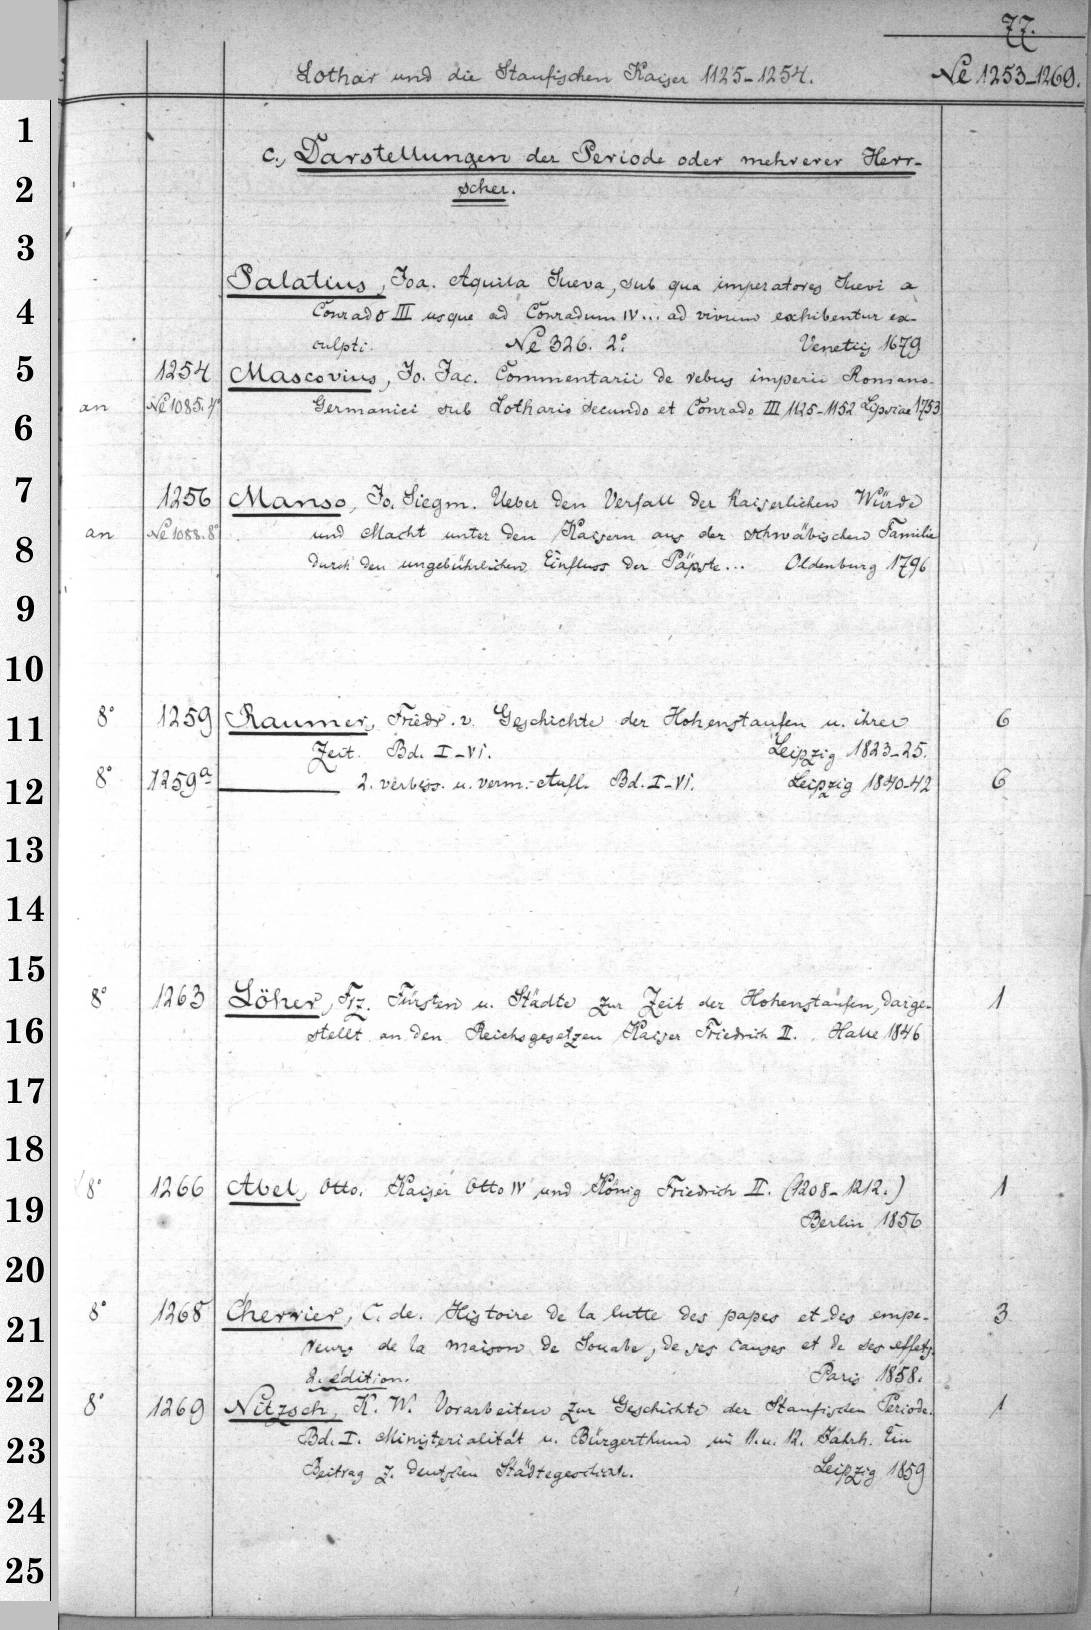 77.
Lothar und die Staufischen Kaiser 1125-1254. Ne 1253-1269.
1
c., Darstellungen der Periode oder mehrerer Herr-
2
scher.
3
Palatius, Joa. Aquila Sueva, sub qua imperatores Suevi a
4
Conrado III usque ad Conradum IV... ad vivum exhibentur ex-
culpti. Ne 326. 2°. Venetiis 1679
5
1254 Mascovius, Jo. Jac. Commentarii de rebus imperii Romano-
an Ne 1085. 4° Germanici sub Lothario secundo et Conrado III 1125-1152 Lipsiae 1753
6
7
1256 Manso, Jo. Siegm. Ueber den Verfall der kaiserlichen Würde
an Ne 1088. 8° und Macht unter den Kaisern aus der schwäbischen Familie
8
durch den ungebührlichen Einfluss der Päpste... Oldenburg 1796
9
10
8° 1259 Raumer, Friedr. v. Geschichte der Hohenstaufen u. ihrer 6
11
Zeit. Bd. I-VI. Leipzig 1823-25.
8° 1259a 2. verbess. u. verm. Aufl. Bd. I-VI. Leipzig 1840-42 6
12
13
14
15
8° 1263 Löher, Frz. Fürsten u. Städte zur Zeit der Hohenstaufen, darge- 1
16
stellt an den Reichsgesetzen Kaiser Friedrich II. Halle 1846
17
18
8° 1266 Abel, Otto. Kaiser Otto IV und König Friedrich II. (1208-1212.) 1
19
Berlin 1856
20
8° 1268 Cherrier, C. de. Histoire de la lutte des papes et des empe- 3
21
reurs de la maison de Souabe, de ses causes et de ses effets.
2. édition. Paris 1858.
22
8° 1269 Nitzsch, K. W. Vorarbeiten zur Geschichte der Staufischen Periode. 1
Bd. I. Ministerialität u. Bürgerthum im 11. u. 12. Jahrh. Ein
23
Beitrag z. deutschen Städtegeschichte. Leipzig 1859
24
25